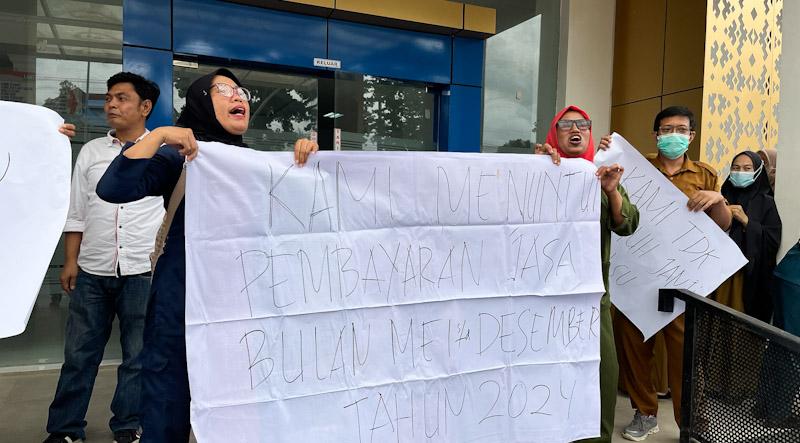 KELUAR
KAMI MENUNTU
PEMBAYARAN JASA
BULAN MEI s/d DESEMBER
TAHUN 2024
KAMI TDK